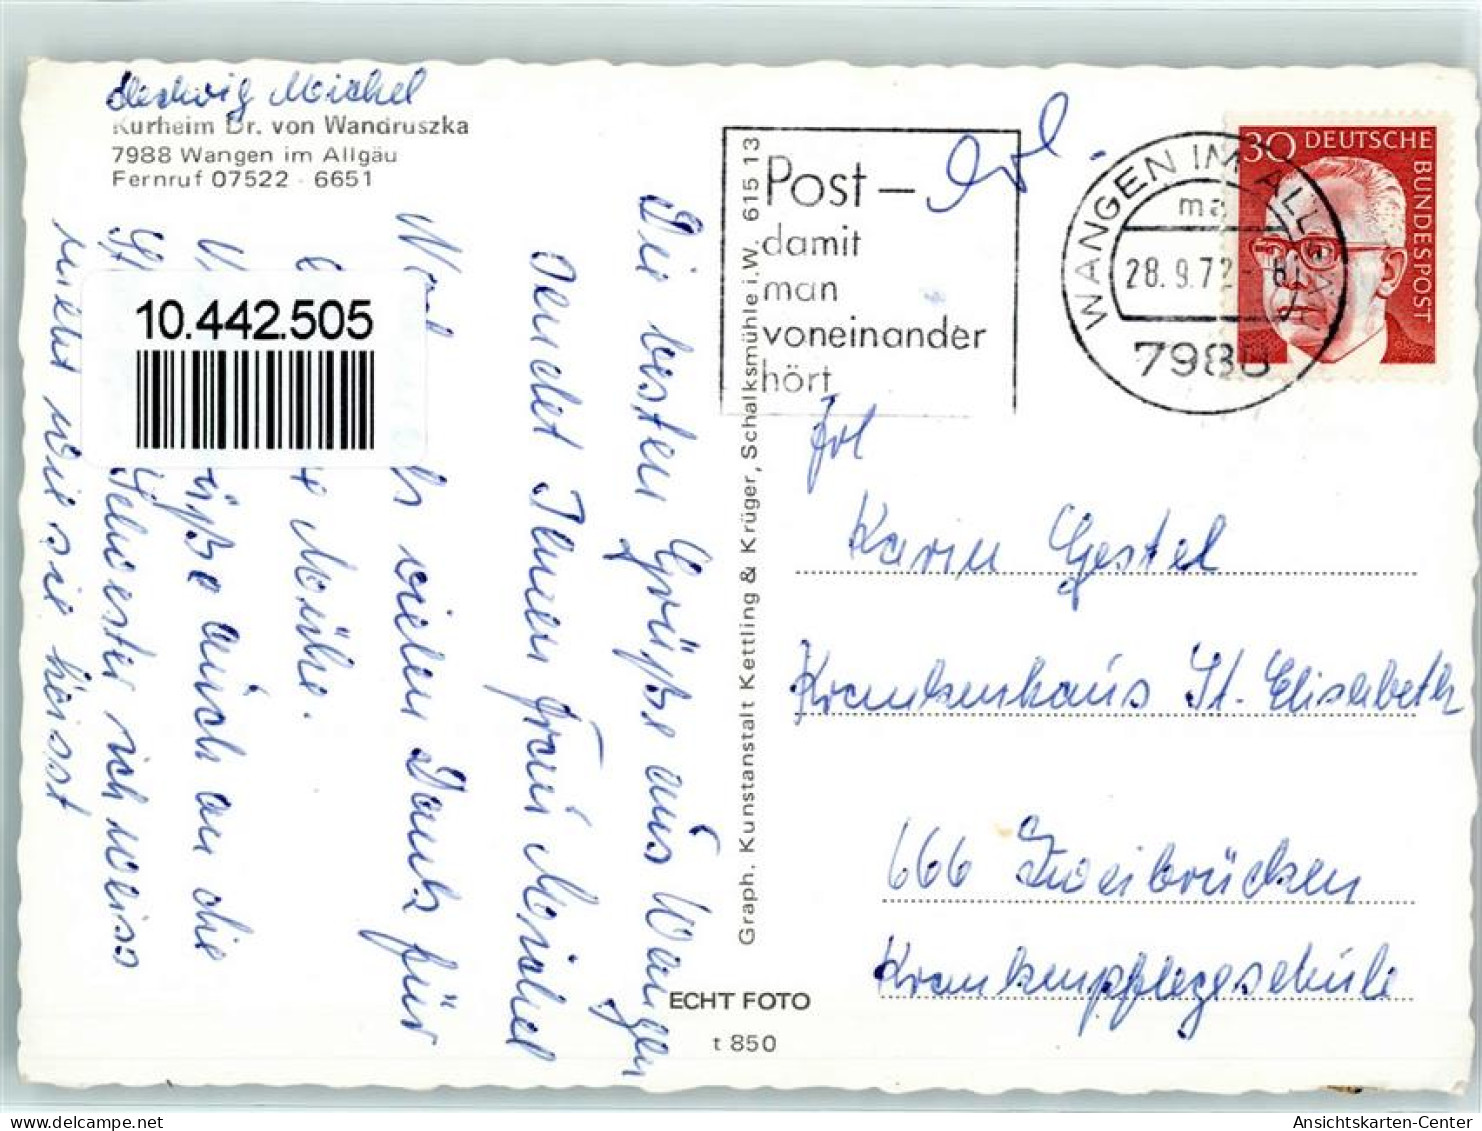 Hedwig Michel
Kurheim Dr. von Wandruszka
7988 Wangen im Allgäu
Fernruf 07522 - 6651
Die besten Grüße aus Wangen
sendet Ihnen Frau Michel
vielen Dank für
Mühe.
auch an die
Schwester ich weiss
nicht wie sie heisst
10.442.505
Graph. Kunstanstalt Kettling & Krüger, Schalksmühle i.W. 615 13
ECHT FOTO
t 850
Post –
damit
man
voneinander
hört
WANGEN IM ALLGÄU
ma
28.9.72
7988
30 DEUTSCHE
BUNDESPOST
Karin Gestel
Krankenhaus St. Elisabeth
666 Zweibrücken
Krankenpflegeschule
Ansichtskarten-Center